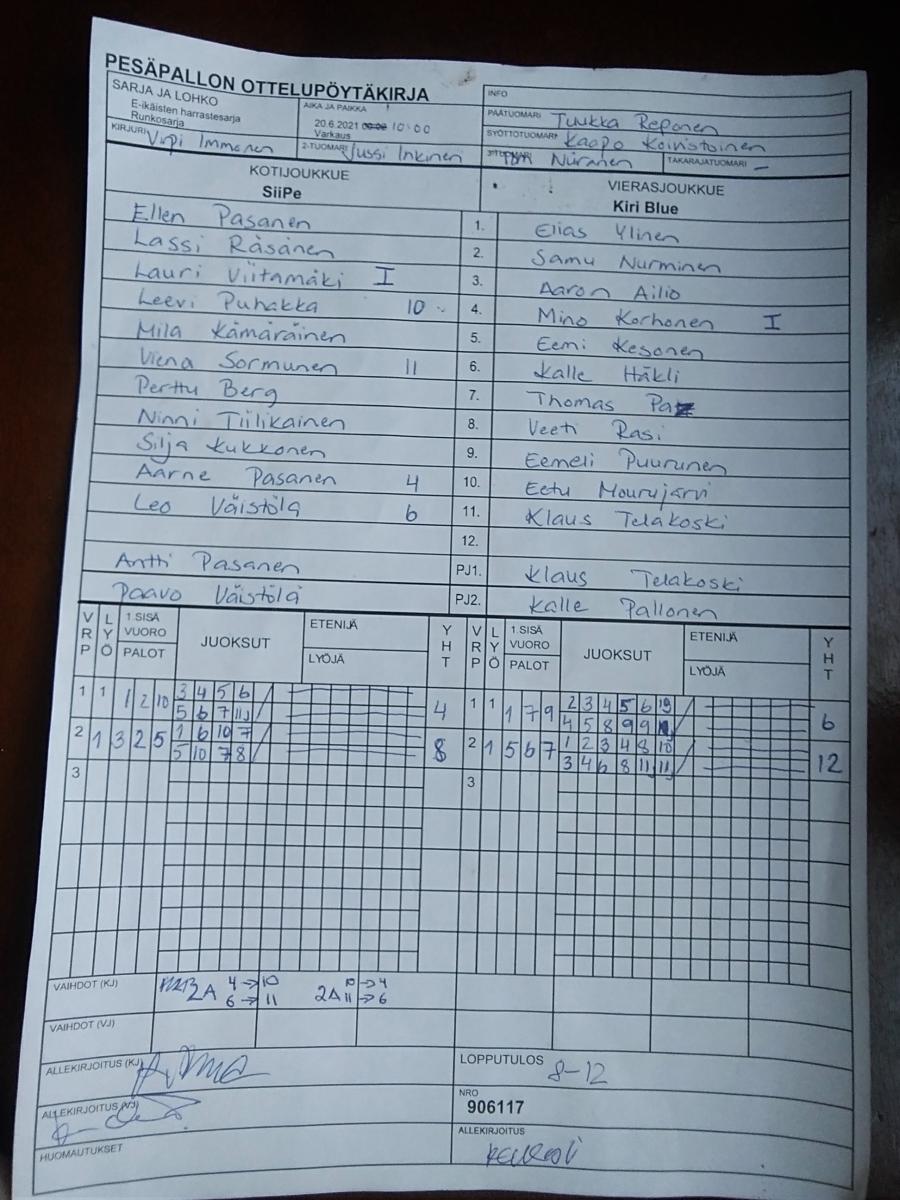 PESÄPALLON OTTELUPÖYTÄKIRJA
SARJA JA LOHKO
E-ikäisten harrastesarja
Runkosarja
AIKA JA PAIKKA
20.6.2021 00:00 10:00
Varkaus
KIRJURI Virpi Immonen
2-TUOMARI Jussi Inkinen
INFO
PÄÄTUOMARI Tuukka Reponen
SYÖTTÖTUOMARI Kaapo Koivistoinen
Niiranen
TAKARAJATUOMARI –
KOTIJOUKKUE
SiiPe
VIERASJOUKKUE
Kiri Blue
Ellen Pasanen 1. Elias Ylinen
Lassi Räsänen 2. Samu Nurminen
Lauri Viitamäki I 3. Aaron Ailio
Leevi Puhakka 10 4. Mino Korhonen I
Mila Kämäräinen 5. Eemi Kesonen
Viena Sormunen 11 6. Kalle Häkli
Perttu Berg 7. Thomas
Ninni Tiilikainen 8. Veeti Rasi
Silja Kukkonen 9. Eemeli Puurunen
Aarne Pasanen 4 10. Eetu Mourujärvi
Leo Väistölä 6 11. Klaus Telakoski
12.
Antti Pasanen PJ1. Klaus Telakoski
Paavo Väistölä PJ2. Kalle Pallonen
VRP LYÖ 1.SISÄ VUORO PALOT JUOKSUT ETENIJÄ LYÖJÄ YHT VRP LYÖ 1.SISÄ VUORO PALOT JUOKSUT ETENIJÄ LYÖJÄ YHT
1 1 1 2 10 3 4 5 6 4 1 1 1 7 9 2 3 4 5 6 6
5 6 7 11 4 5 8 9 9
2 1 3 2 5 1 6 10 7 8 2 1 5 6 7 1 2 3 4 8 10 12
5 10 7 8 3 4 6 8 11 11
3 3
VAIHDOT (KJ) 2A 4→10 2A 10→4
6→11 11→6
VAIHDOT (VJ)
ALLEKIRJOITUS (KJ)
LOPPUTULOS 8-12
ALLEKIRJOITUS (VJ)
NRO
906117
HUOMAUTUKSET
ALLEKIRJOITUS